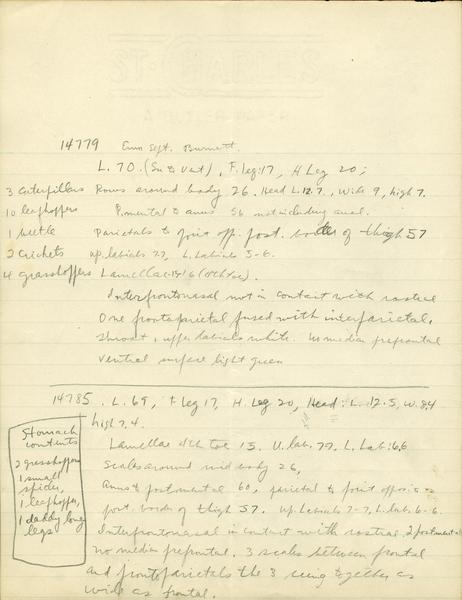 ST. CHARLES
14779
Burnett.
L. 70. (Sn to Vent), F. leg 17, H Leg 20;
3 Caterpillars Rows around body 26. Head L. 12.7, Wide 9, high 7.
10 leafhoppers to anus 56 not including anal.
1 beetle parietals to point opp. post. border of thigh 57
2 crickets up. labials 77, L. Labials 5-6.
4 grasshoppers Lamellae
Interfrontonasal not in contact with rostral
One frontoparietal fused with interparietal,
throat, upper labials white. No median prefrontal
Ventral surface light green
14785. L. 69, F. leg 17, H. Leg 20, Head: L. 12.5, W. 8.4
high 7.4.
Stomach
contents
2 grasshoppers
1 small
spider,
1 leafhopper,
1 daddy long
legs
Lamellae 4th toe 15. U. lab. 77. L. Lab: 6,6
Scales around mid body 26,
Anus to postmental 60, parietal to point opposite
post. border of thigh 57. up. Labials 7-7, L. labs 6-6.
Interfrontonasal in contact with rostral. 2 postmentals
no median prefrontal. 3 scales between frontal
and frontoparietals the 3 being together as
wide as frontal.